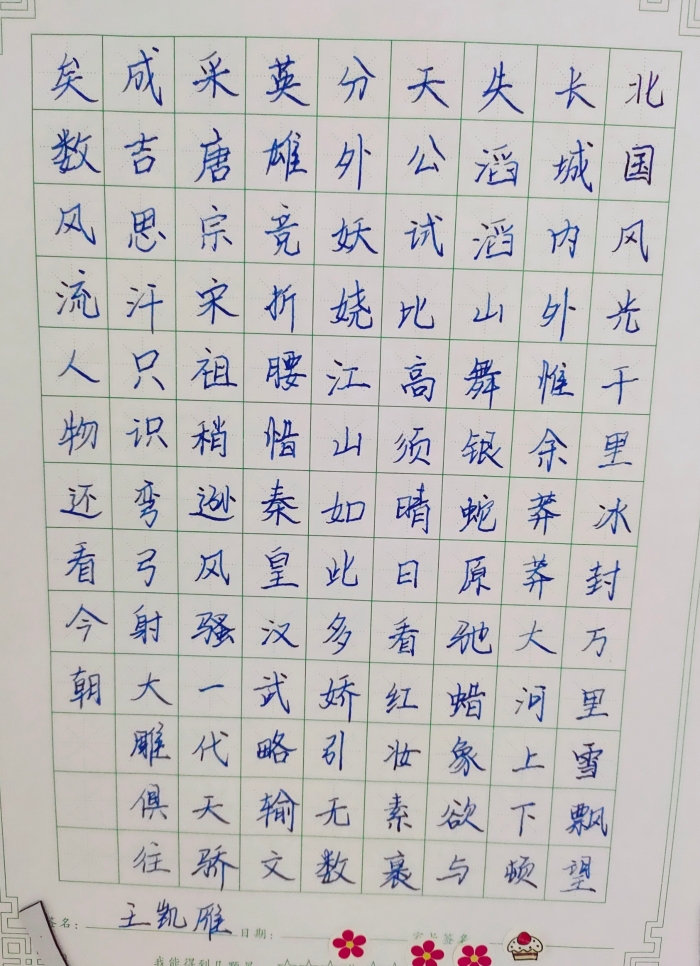 北国风光千里冰封万里雪飘望
长城内外惟余莽莽大河上下顿
失滔滔山舞银蛇原驰蜡象欲与
天公试比高须晴日看红妆素裹
分外妖娆江山如此多娇引无数
英雄竞折腰惜秦皇汉武略输文
采唐宗宋祖稍逊风骚一代天骄
成吉思汗只识弯弓射大雕俱往
矣数风流人物还看今朝
签名: 王凯雁 日期: 家长签名
我能得到几颗星